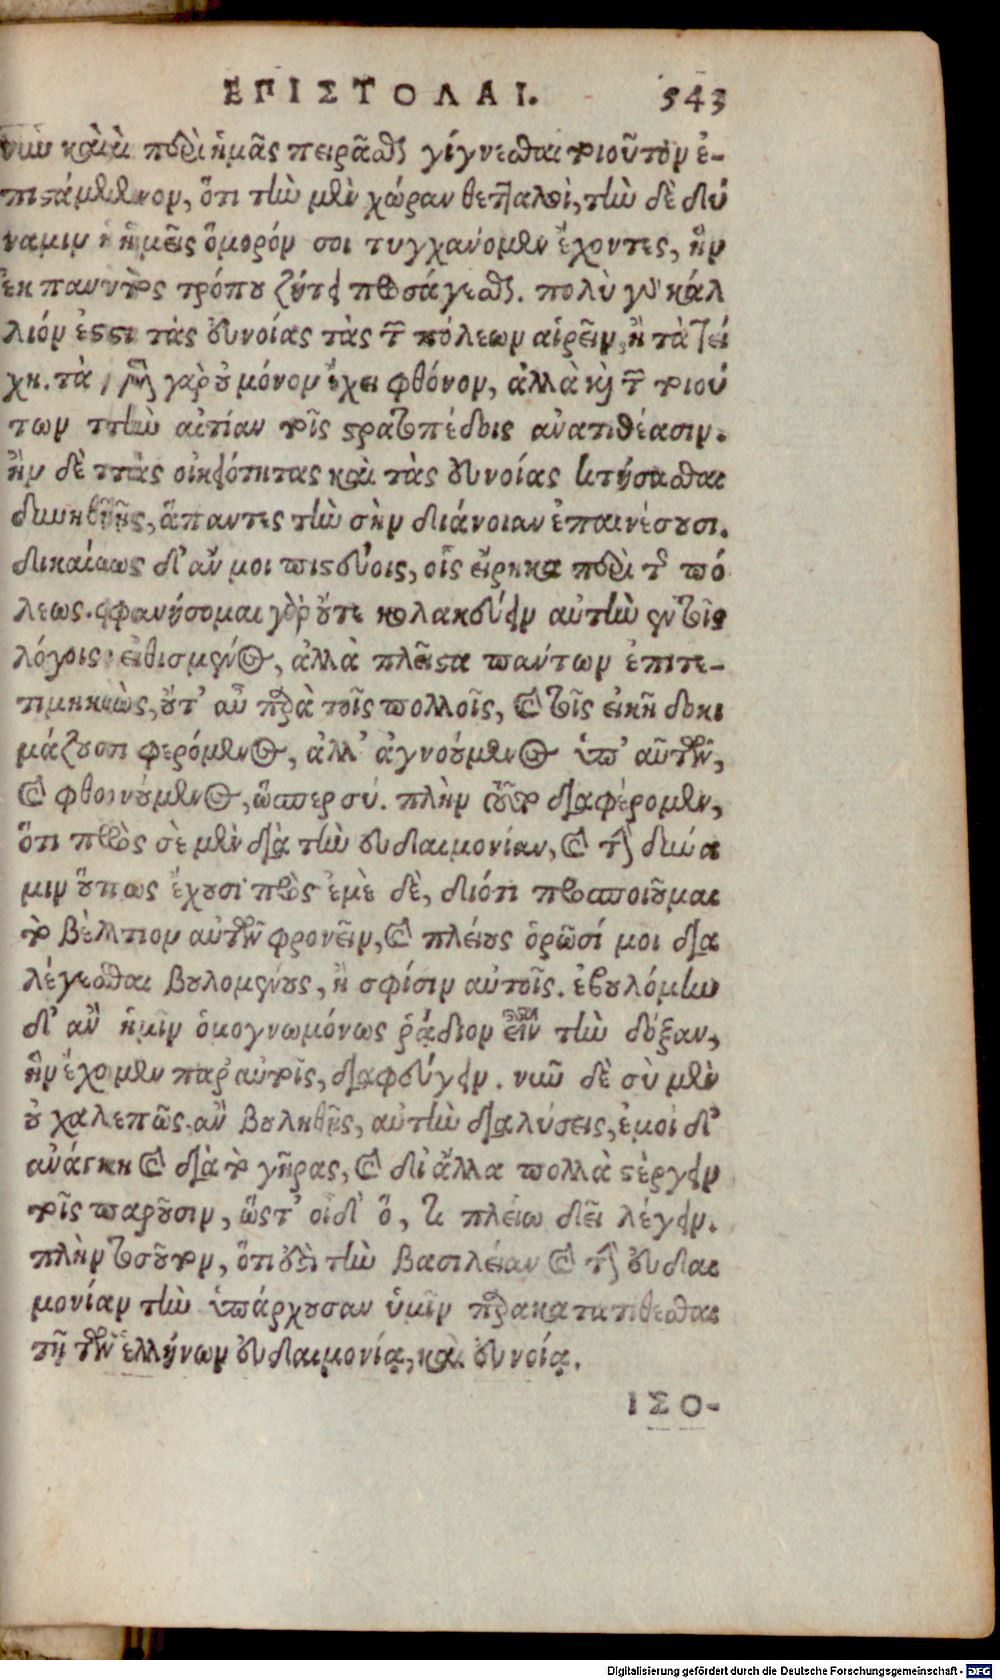 ΕΠΙΣΤΟΛΑΙ. 543
νῦν καὶ περὶ ἡμᾶς πειρᾶσθαι γίγνεσθαι τοιοῦτον ἐ-
πιστάμενον, ὅτι τὴν μὲν χώραν θετταλοὶ, τὴν δὲ δύ
ναμιν ἡμεῖς ὅμορόν σοι τυγχάνομεν ἔχοντες, ἣν
ἐκ παντὸς τρόπου ζήτει προσάγεσθαι. πολὺ γὰρ κάλ
λιόν ἐστι τὰς εὐνοίας τὰς τῶν πόλεων αἱρεῖν, ἢ τὰ τεί
χη. τὰ μὲν γὰρ οὐ μόνον ἔχει φθόνον, ἀλλὰ καὶ τῶν τοιού
των τὴν αἰτίαν τοῖς στρατοπέδοις ἀνατιθέασιν.
ἢν δὲ τὰς οἰκειότητας καὶ τὰς εὐνοίας κτήσασθαι
δυνηθῇς, ἅπαντες τὴν σὴν διάνοιαν ἐπαινέσουσι.
δικαίως δ' ἄν μοι πιστεύοις, οἷς εἴρηκα περὶ τῆς πό
λεως. φανήσομαι γὰρ οὔτε κολακεύειν αὐτὴν ἐν τοῖς
λόγοις εἰθισμένος, ἀλλὰ πλεῖστα πάντων ἐπιτε-
τιμηκὼς, οὔτ' εὖ παρὰ τοῖς πολλοῖς, καὶ τοῖς εἰκῇ δοκι
μάζουσι φερόμενος, ἀλλ' ἀγνοούμενος ὑπ' αὐτῶν,
καὶ φθονούμενος, ὥσπερ σύ. πλὴν τοσοῦτο διαφέρομεν,
ὅτι πρὸς σὲ μὲν διὰ τὴν εὐδαιμονίαν, καὶ τὴν δύνα
μιν οὕπως ἔχουσι πρὸς ἐμὲ δὲ, διότι προσποιοῦμαι
τὸ βέλτιον αὐτῶν φρονεῖν, καὶ πλείους ὁρῶσί μοι δια
λέγεσθαι βουλομένους, ἢ σφίσιν αὐτοῖς. ἐβουλόμην
δ' ἂν ἡμῖν ὁμογνωμόνως ῥᾴδιον εἶναι τὴν δόξαν,
ἣν ἔχομεν παρ' αὐτοῖς, διαφεύγειν. νῦν δὲ σὺ μὲν
οὐ χαλεπῶς ἂν βουληθῇς, αὐτὴν διαλύσεις, ἐμοὶ δ'
ἀνάγκη καὶ διὰ τὸ γῆρας, καὶ δι' ἄλλα πολλὰ στέργειν
τοῖς παροῦσιν, ὥστ' οἶδ' ὅ, τι πλείω δεῖ λέγειν.
πλὴν τοσοῦτον, ὅτι τὴν βασιλείαν καὶ τὴν εὐδαι
μονίαν τὴν ὑπάρχουσαν ὑμῖν παρακατατιθεσθαι
τῇ τῶν ἑλλήνων εὐδαιμονίᾳ, καὶ εὐνοίᾳ.
ΙΣΟ-
Digitalisierung gefördert durch die Deutsche Forschungsgemeinschaft - DFG